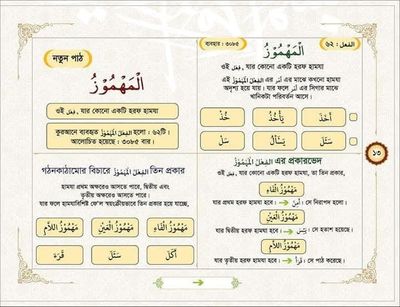 নতুন পাঠ
اَلْمَهْمُوْزُ
ওই فِعْل, যার কোনো একটি হরফ হামযা
কুরআনে ব্যবহৃত اَلْفِعْلُ الْمَهْمُوْزُ হলো : ৬২টি।
আলোচিত হয়েছে: ৩০৮৫ বার।
গঠনকাঠামোর বিচারে اَلْفِعْلُ الْمَهْمُوْزُ তিন প্রকার
হামযা প্রথম অক্ষরেও আসতে পারে, দ্বিতীয় এবং
তৃতীয় অক্ষরেও আসতে পারে।
যার ফলে হামযাবিশিষ্ট ফে'ল স্বয়ংক্রিয়ভাবে তিন প্রকার হয়ে যাচ্ছে,
مَهْمُوْزُ الْفَاءِ مَهْمُوْزُ الْعَيْنِ مَهْمُوْزُ اللَّامِ
أَكَلَ سَئَلَ قَرَءَ
ব্যবহার: ৩০৮৫
اَلْفِعْلُ : ৬২
اَلْمَهْمُوْزُ
ওই فِعْل, যার কোনো একটি হরফ হামযা
এই اَلْفِعْلُ الْمَهْمُوْزُ এর أمر এর মাঝে কখনো হামযা
অদৃশ্য হয়ে যায়। যার ফলে أمر এর সিগার মাঝে
খানিকটা পরিবর্তন আসে।
أَخَذَ يَأْخُذُ خُذْ
سَئَلَ يَسْأَلُ سَلْ
اَلْفِعْلُ الْمَهْمُوْزُ এর প্রকারভেদ
ওই فِعْل, যার কোনো একটি হরফ হামযা, তা তিন প্রকার,
مَهْمُوْزُ الْفَاءِ
যার প্রথম হরফ হামযা হবে। أَمِنَ : সে নিরাপদ হলো।
مَهْمُوْزُ الْعَيْنِ
যার দ্বিতীয় হরফ হামযা হবে। يَئِسَ : সে হতাশ হয়েছে।
مَهْمُوْزُ اللَّامِ
যার তৃতীয় হরফ হামযা হবে। قَرَأَ : সে পাঠ করেছে।
১৩